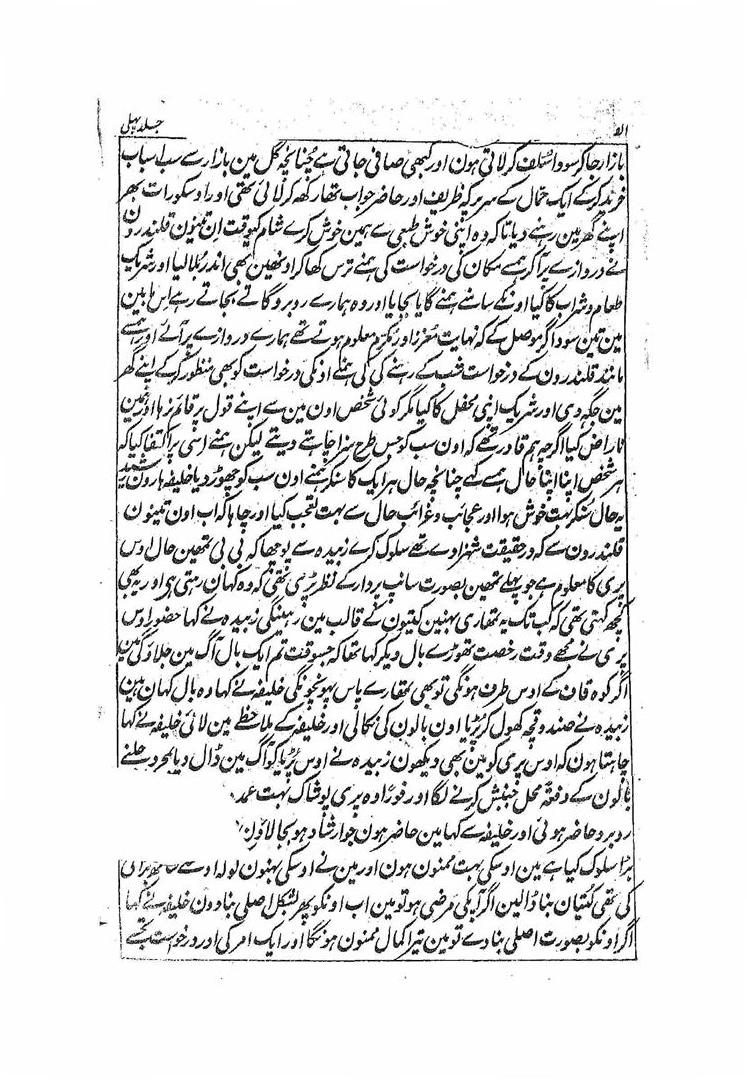 الف
جلد پہلی
بازار جاکر سودا سلف کر لاتی ہون اور کبھی صافی جاتی ہے چنانچہ کل مین بازار سے سب اسباب
خرید کرکے ایک حمال کے سر پر کہ ظریف اور حاضر جواب تھا رکھہ کر لائی تھی اور اوسکو رات بھر
اپنے گھر مین رہنے دیا تاکہ وہ اپنی خوش طبعی سے ہمین خوش کرے شام کیوقت اِن تینون قلندرون
نے دروازے پر آکر ہمسے مکان کی درخواست کی ہمنے ترس کھاکر اونھین بھی اندر بُلا لیا اور شریک
طعام و شراب کا کیا اونکے سامنے ہمنے گایا بجایا اور وہ ہمارے روبرو گاتے بجاتے رہے اِس مابین
مین تین سوداگر موصل کے کہ نہایت معزز اور مکرم معلوم ہوتے تھے ہمارے دروازے پر آئے اور ہمسے
مانند قلندرون کے درخواست شب کے رہنے کی کی ہمنے اونکی درخواست کو بھی منظور کرکے اپنے گھر
مین جگہ دی اور شریک اپنی محفل کا کیا مگر کوئی شخص اون مین سے اپنے قول پر قائم نرہا اور ہمین
ناراض کیا اگرچہ ہم قادر تھے کہ اون سب کو جس طرح سزا چاہتے دیتے لیکن ہمنے اسی پر اکتفا کیا کہ
ہر شخص اپنا اپنا حال ہمسے کہے چنانچہ حال ہر ایک کا سنکر ہمنے اون سب کو چھوڑ دیا خلیفہ ہارون رشید
یہ حال سنکر بہت خوش ہوا اور عجائب و غرائب حال سے بہت تعجب کیا اور چاہا کہ اب اون تینون
قلندرون سے کہ درحقیقت شہزادے تھے سلوک کرے زبیدہ سے پوچھا کہ بی بی تمھین حال اوس
پری کا معلوم ہے جو پہلے تمھین بصورت سانپ بردار کے نظر پڑی تھی کہ وہ کہان رہتی ہی اور یہ بھی
کچھ کہتی تھی کہ کب تک یہ تمھاری بہنین کتیون کے قالب مین رہینگی زبیدہ نے کہا حضور اوس
پری نے مجھے وقت رخصت تھوڑے بال دیکر کہا تھا کہ جسوقت تم ایک بال آگ مین جلاؤگی مین
اگر کوہ قاف کے اوس طرف ہونگی تو بھی تمھارے پاس پہونچونگی خلیفہ نے کہا وہ بال کہان ہین
زبیدہ نے صندوقچہ کھول کر پڑیا اون بالون کی نکالی اور خلیفہ کے ملاحظے مین لائی خلیفہ نے کہا
چاہتا ہون کہ اوس پری کو مین بھی دیکھون زبیدہ نے اوس پڑیا کو آگ مین ڈال دیا بمجرد جلنے
بالون کے دفعۃً محل جنبش کرنے لگا اور فوراً وہ پری پوشاک بہت عمدہ
روبرو حاضر ہوئی اور خلیفہ سے کہا مین حاضر ہون جو ارشاد ہو بجا لاؤن
بڑا سلوک کیا ہے مین اوسکی بہت ممنون ہون اور مین نے اوسکی بہنون کو
کی تھی کتیان بنا ڈالین اگر آپکی مرضی ہو تو مین اب اونکو پھر بشکل اصلی بنادون خلیفہ نے کہا
اگر اونکو بصورت اصلی بنادے تو مین تیرا کمال ممنون ہونگا اور ایک امر کی اور درخواست تجھسے